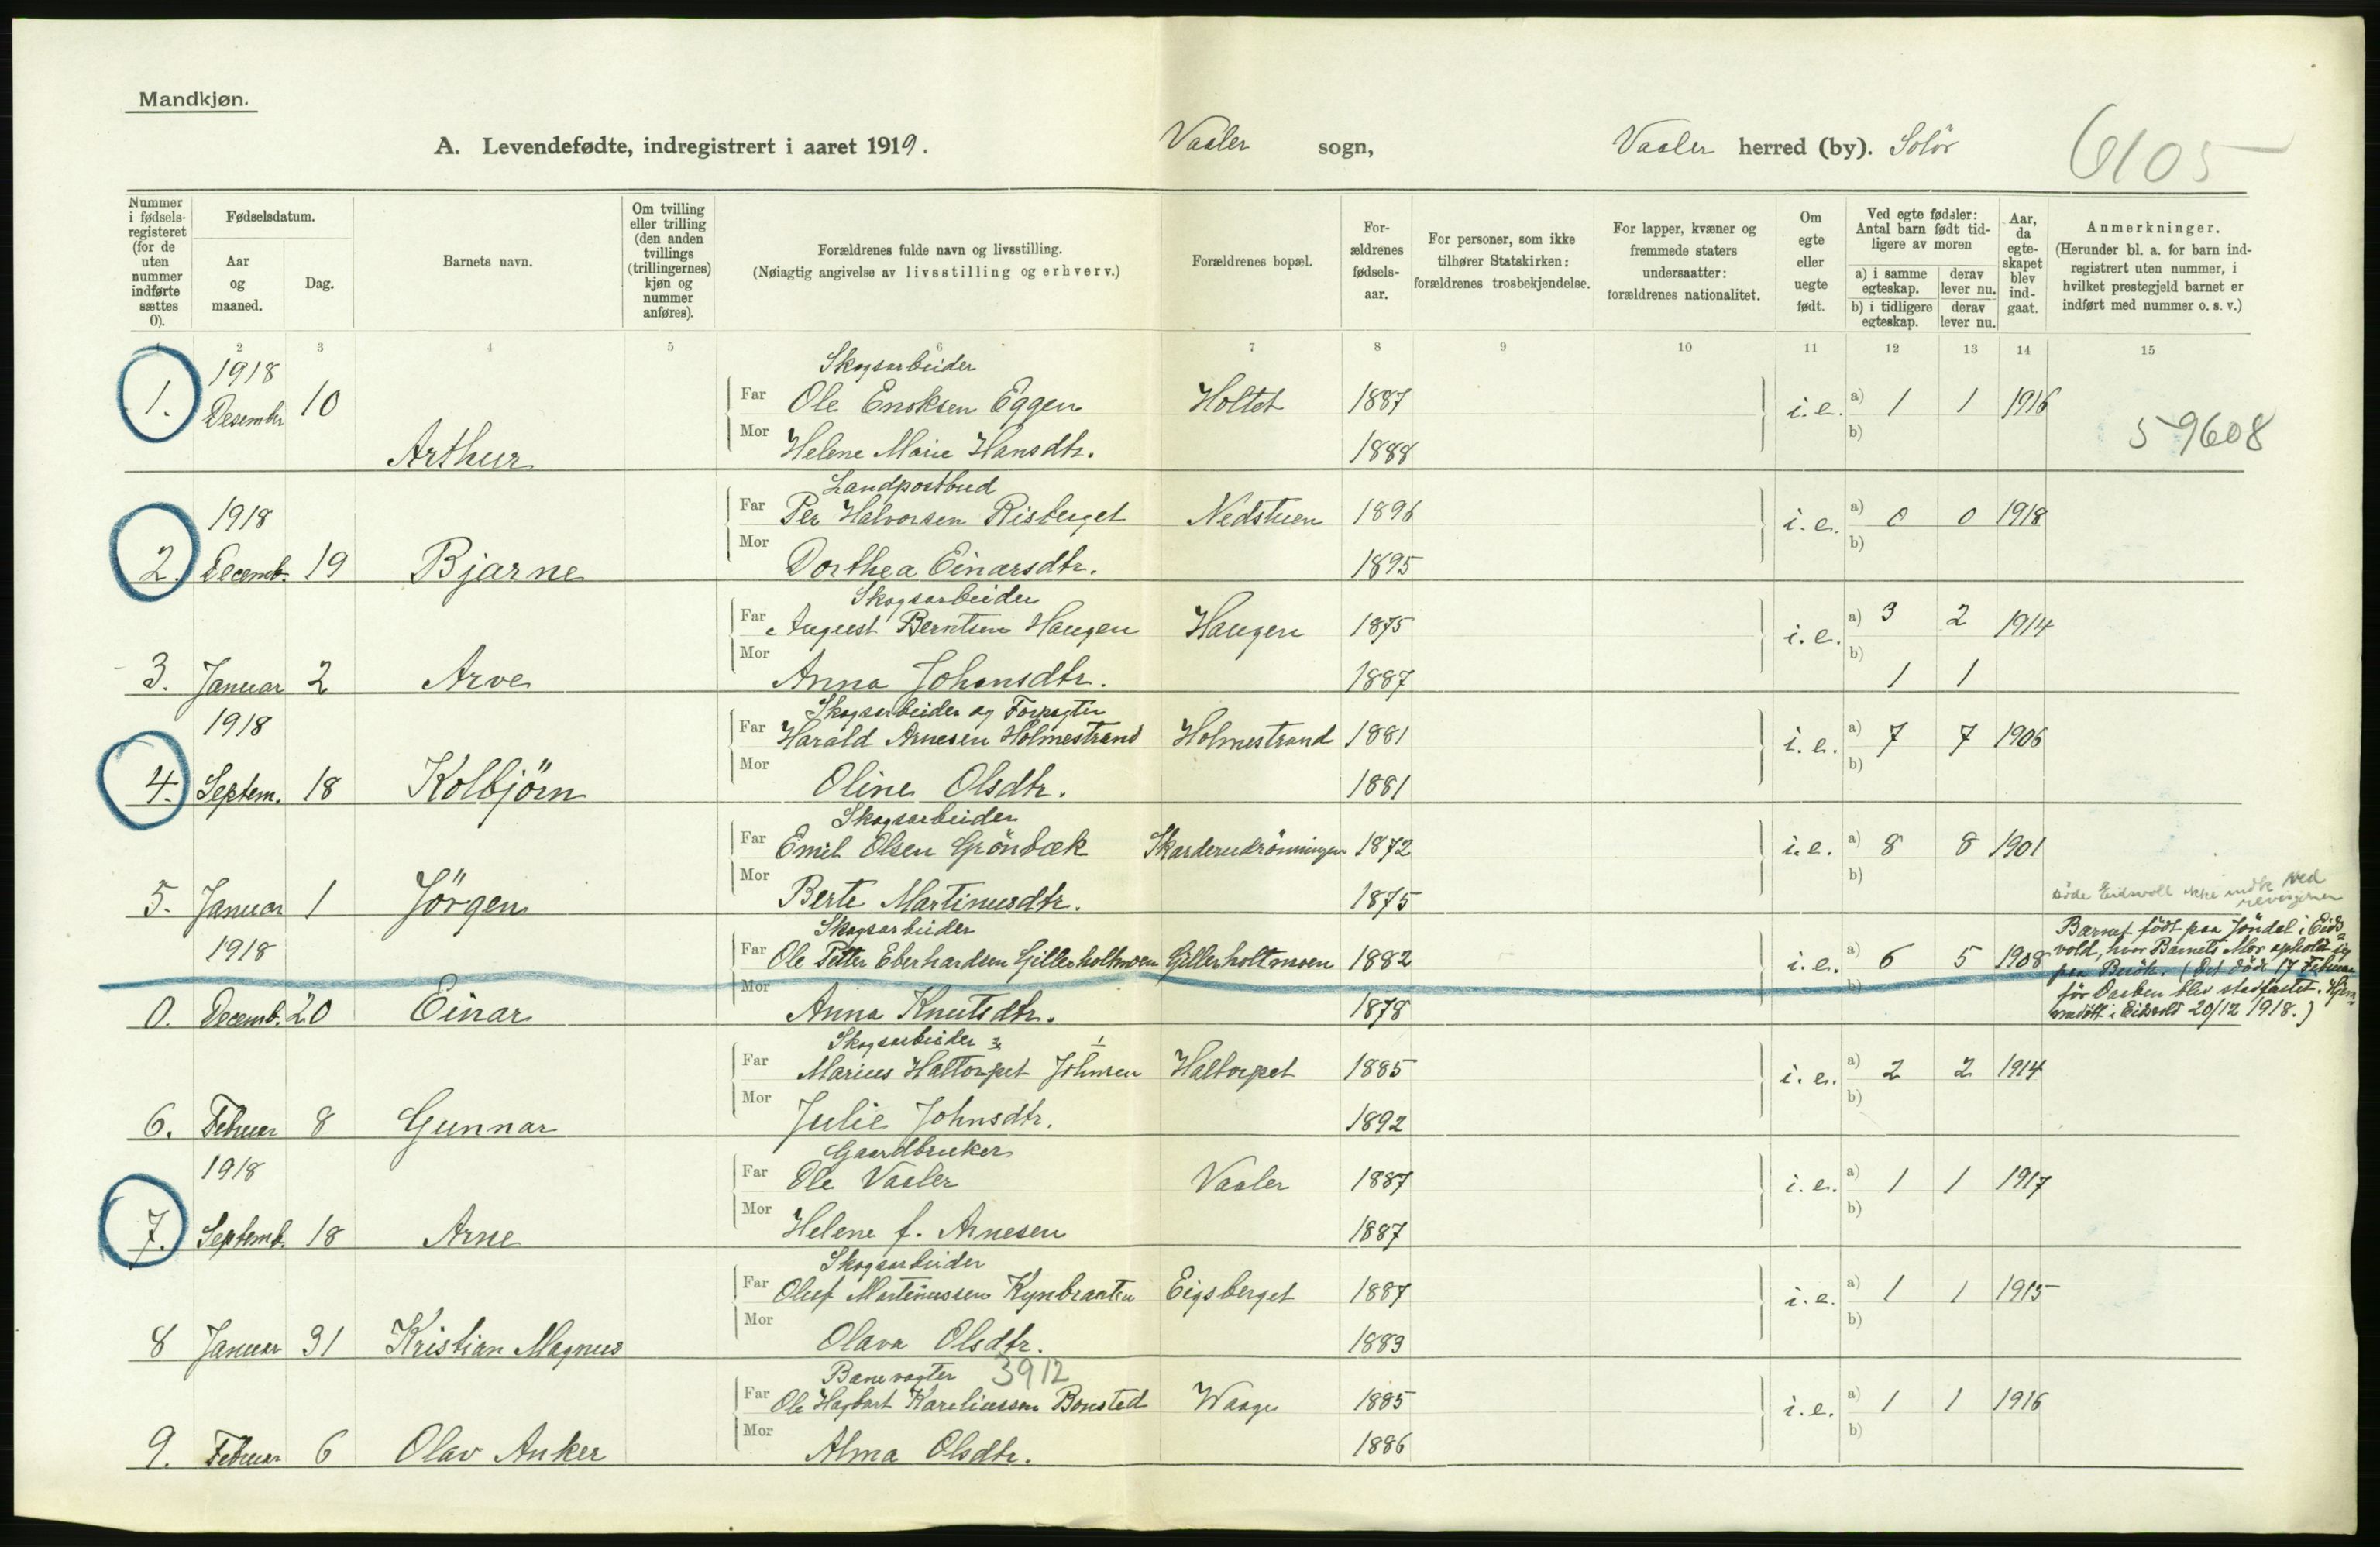 Mandkjøn.
A. Levendefødte, indregistrert i aaret 1919. Vaaler sogn, Vaaler herred (by). Solör
6105
Nummer i fødsels-registeret (for de uten nummer indførte sættes 0).
Fødselsdatum.
Aar og maaned.
Dag.
Barnets navn.
Om tvilling eller trilling (den anden tvillings (trillingernes) kjøn og nummer anføres).
Forældrenes fulde navn og livsstilling.
(Nøiagtig angivelse av livsstilling og erhverv.)
Forældrenes bopæl.
For-ældrenes fødsels-aar.
For personer, som ikke tilhører Statskirken: forældrenes trosbekjendelse.
For lapper, kvæner og fremmede staters undersaatter: forældrenes nationalitet.
Om egte eller uegte født.
Ved egte fødsler: Antal barn født tid-ligere av moren
a) i samme egteskap. derav lever nu.
b) i tidligere egteskap. derav lever nu.
Aar, da egte-skapet blev ind-gaat.
Anmerkninger.
(Herunder bl. a. for barn ind-registrert uten nummer, i hvilket prestegjeld barnet er indført med nummer o. s. v.)
1 2 3 4 5 6 7 8 9 10 11 12 13 14 15
1918 Skogsarbeider
1. Desembr 10 Far Ole Enoksen Eggen Holtet 1887 i.e. a) 1 1 1916
Arthur Mor Helene Marie Hansdtr. 1888 b) 59608
Landpostbud
1918 Far Per Halvorsen Risberget Nedstuen 1896 i.e. a) 0 0 1918
2. Decemb. 19 Bjarne Mor Dorthea Einarsdtr. 1895 b)
Skogsarbeider
Far August Berntsen Haugen Haugen 1875 i.e. a) 3 2 1914
3. Januar 2 Arve Mor Anna Johansdtr. 1887 b) 1 1
Skogsarbeider og Forpagter
1918 Far Harald Arnesen Holmestrand Holmestrand 1881 i.e. a) 7 7 1906
4. Septem. 18 Kolbjörn Mor Oline Olsdtr. 1881 b)
Skogsarbeider
Far Emil Olsen Grönbæk Skarderudrönningen 1872 i.e. a) 8 8 1901
5. Januar 1 Jörgen Mor Berte Martinusdtr. 1875 b)
Eidsvoll ikke indk ved
Skogsarbeider
1918 Far Ole Petter Eberhardsen Gillerholtmoen Gillerholtmoen 1882 i.e. a) 6 5 1908
0. Decemb. 20 Einar Mor Anna Knutsdtr. 1878 b)
Barnet födt paa Jöndal i Eids-
vold, hvor Barnets Mor opholdt sig
paa Besök. (Det döde 17 Februar
för Daaben blev stadfæstet. Hjem-
medöbt i Eidsvold 20/12 1918.)
Skogsarbeider 2 1
Far Marius Haltorpet Johnsen Haltorpet 1885 i.e. a) 2 2 1914
6. Februar 8 Gunnar Mor Julie Johnsdtr. 1892 b)
Gaardbruker
1918 Far Ole Vaaler Vaaler 1887 i.e. a) 1 1 1917
7. Septemb. 18 Arne Mor Helene f. Arnesen 1887 b)
Skogsarbeider
Far Oluf Martinussen Kynbraaten Eigsberget 1887 i.e. a) 1 1 1915
8 Januar 31 Kristian Magnus Mor Olava Olsdtr. 1883 b)
Banevogter 3912
Far Ole Hagbart Kareliussen Bonsted Waage 1885 i.e. a) 1 1 1916
9. Februar 6 Olav Anker Mor Alma Olsdtr. 1886 b)